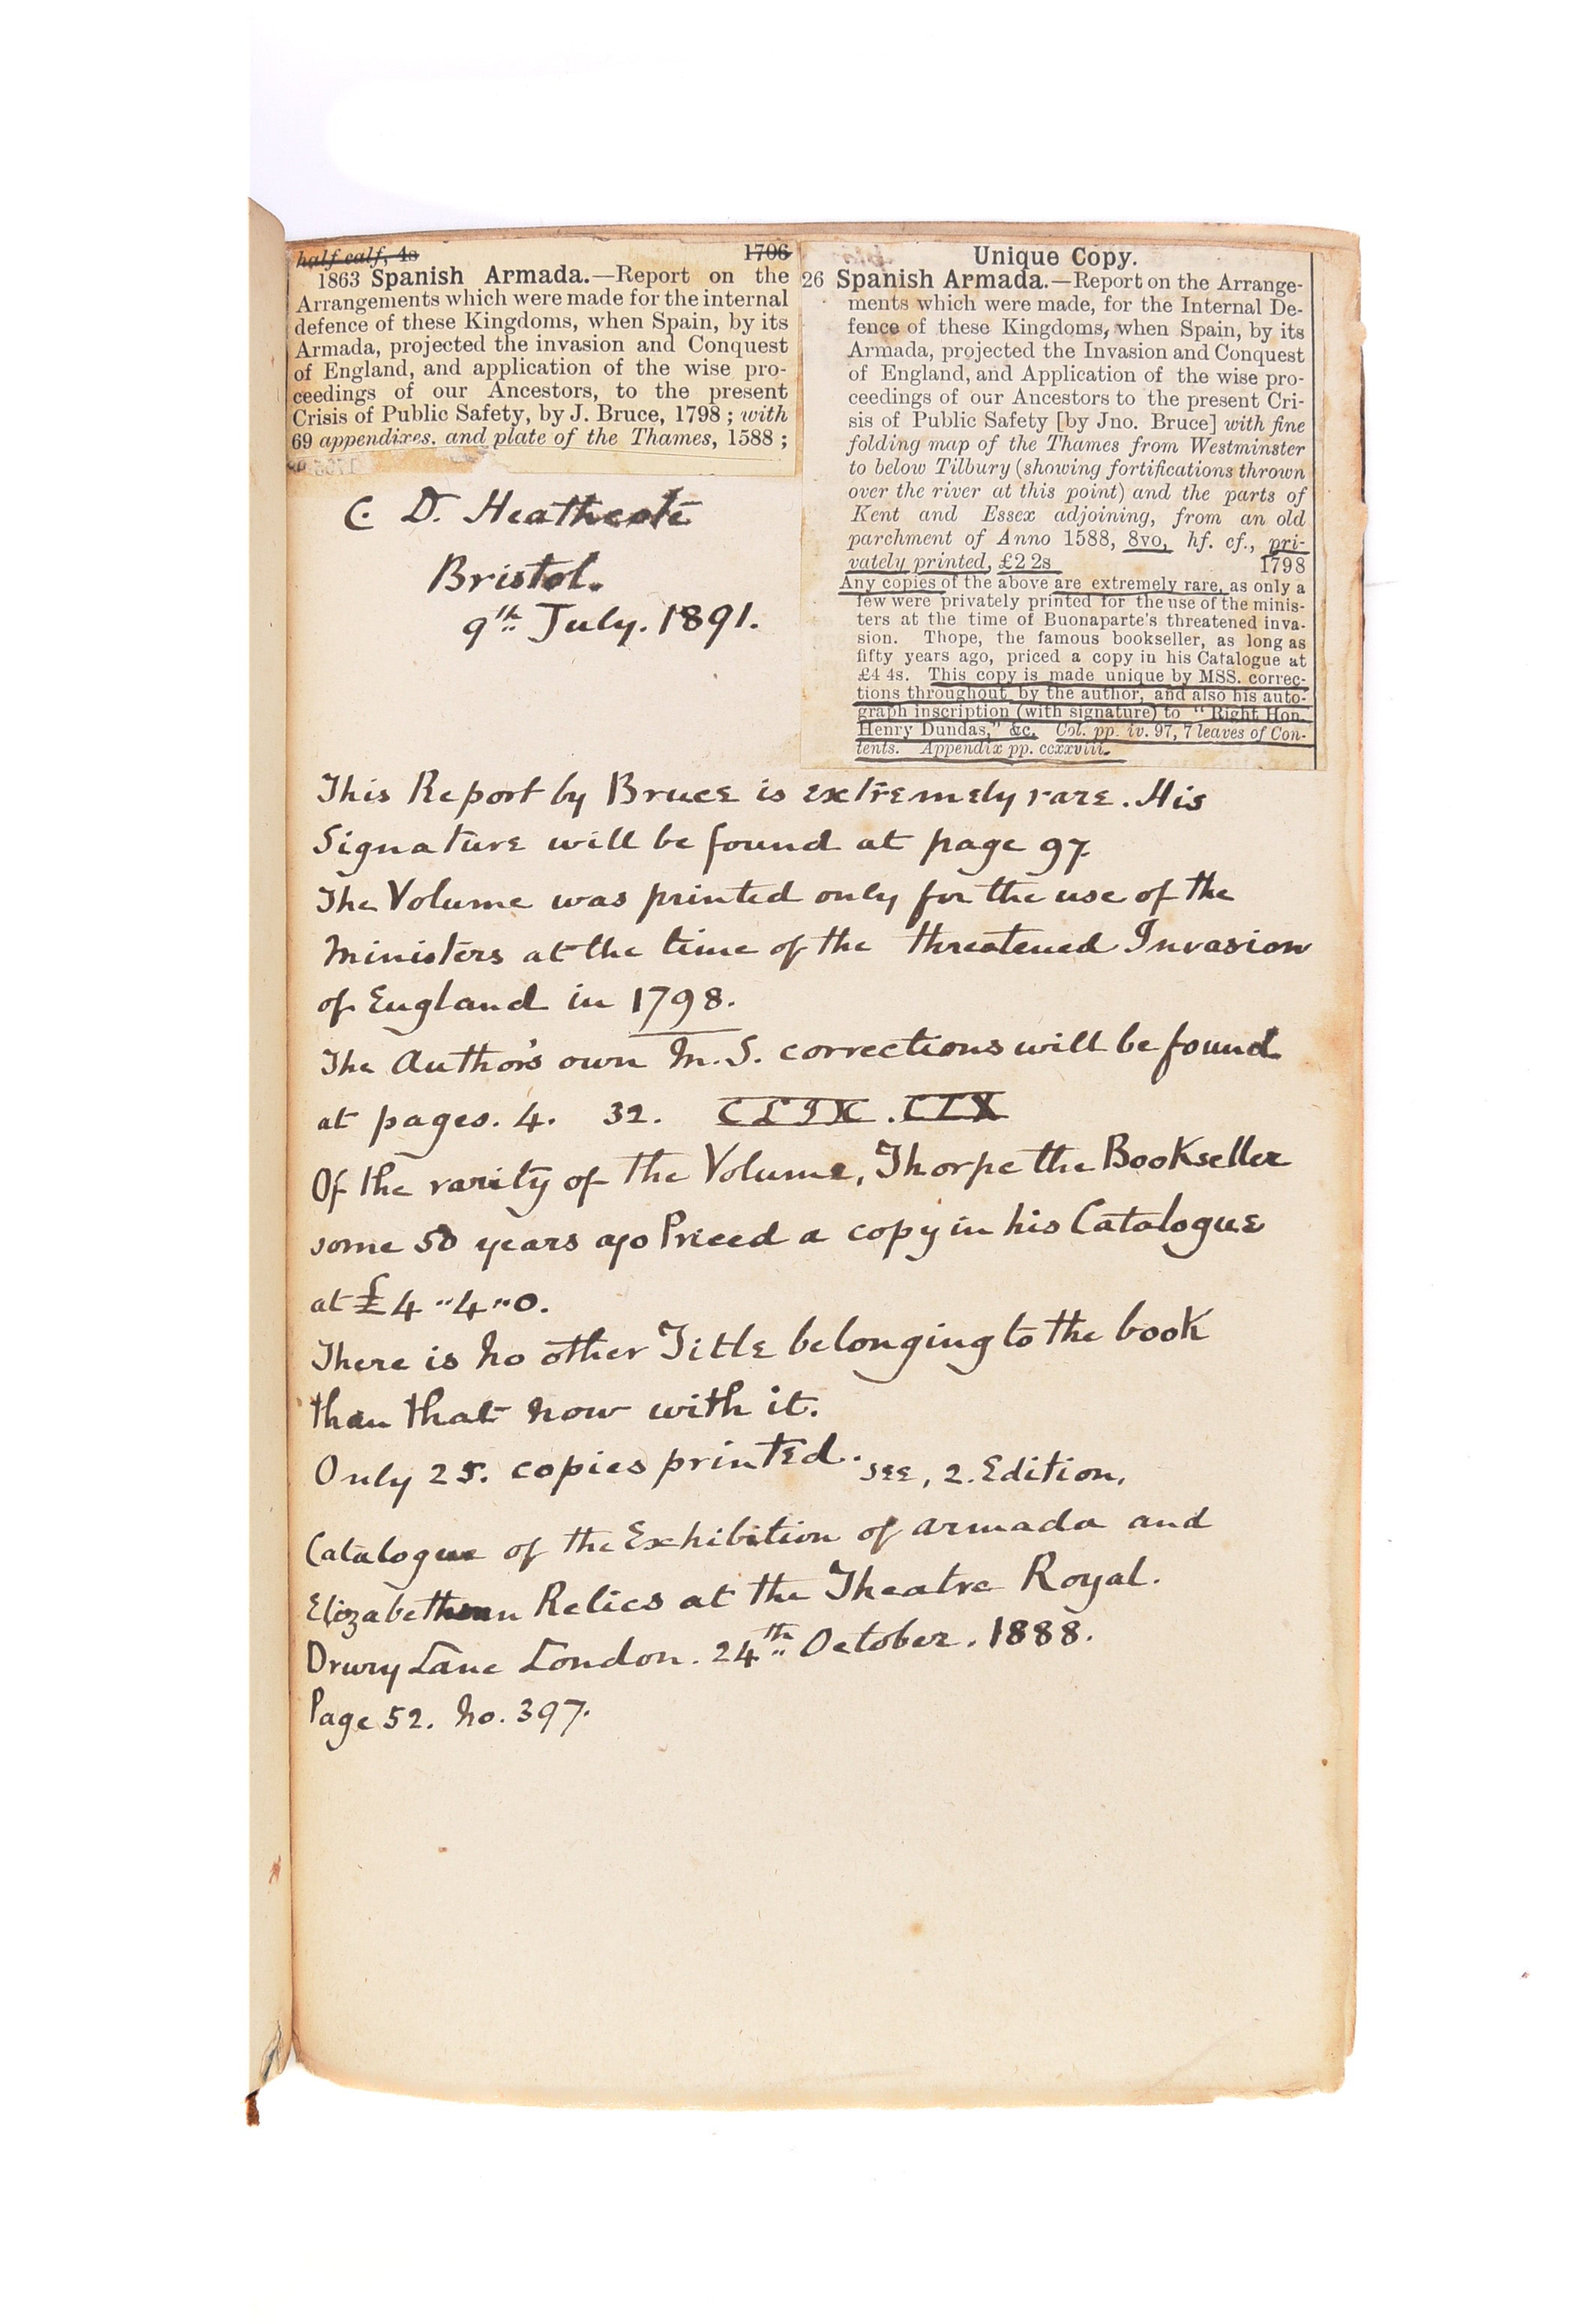 half calf, 4s 1706
1863 Spanish Armada.—Report on the
Arrangements which were made for the internal
defence of these Kingdoms, when Spain, by its
Armada, projected the invasion and Conquest
of England, and application of the wise pro-
ceedings of our Ancestors, to the present
Crisis of Public Safety, by J. Bruce, 1798 ; with
69 appendixes. and plate of the Thames, 1588 ;
Unique Copy.
26 Spanish Armada.—Report on the Arrange-
ments which were made, for the Internal De-
fence of these Kingdoms, when Spain, by its
Armada, projected the Invasion and Conquest
of England, and Application of the wise pro-
ceedings of our Ancestors to the present Cri-
sis of Public Safety [by Jno. Bruce] with fine
folding map of the Thames from Westminster
to below Tilbury (showing fortifications thrown
over the river at this point) and the parts of
Kent and Essex adjoining, from an old
parchment of Anno 1588, 8vo, hf. cf., pri-
vately printed, £2 2s 1798
Any copies of the above are extremely rare, as only a
few were privately printed for the use of the minis-
ters at the time of Buonaparte's threatened inva-
sion. Thope, the famous bookseller, as long as
fifty years ago, priced a copy in his Catalogue at
£4 4s. This copy is made unique by MSS. correc-
tions throughout by the author, and also his auto-
graph inscription (with signature) to "Right Hon.
Henry Dundas," &c. Col. pp. iv. 97, 7 leaves of Con-
tents. Appendix pp. ccxxviii.
C. D. Heathcote
Bristol.
9th July. 1891.
This Report by Bruce is extremely rare. His
Signature will be found at page 97.
The Volume was printed only for the use of the
Ministers at the time of the threatened Invasion
of England in 1798.
The Author's own M.S. corrections will be found
at pages. 4. 32. CLIX. CLX
Of the rarity of the Volume, Thorpe the Bookseller
some 50 years ago Priced a copy in his Catalogue
at £4"4"0.
There is no other Title belonging to the book
than that now with it.
Only 25. copies printed. see, 2. Edition,
Catalogue of the Exhibition of Armada and
Elizabethan Relics at the Theatre Royal.
Drury Lane London. 24th October. 1888.
Page 52. No. 397.